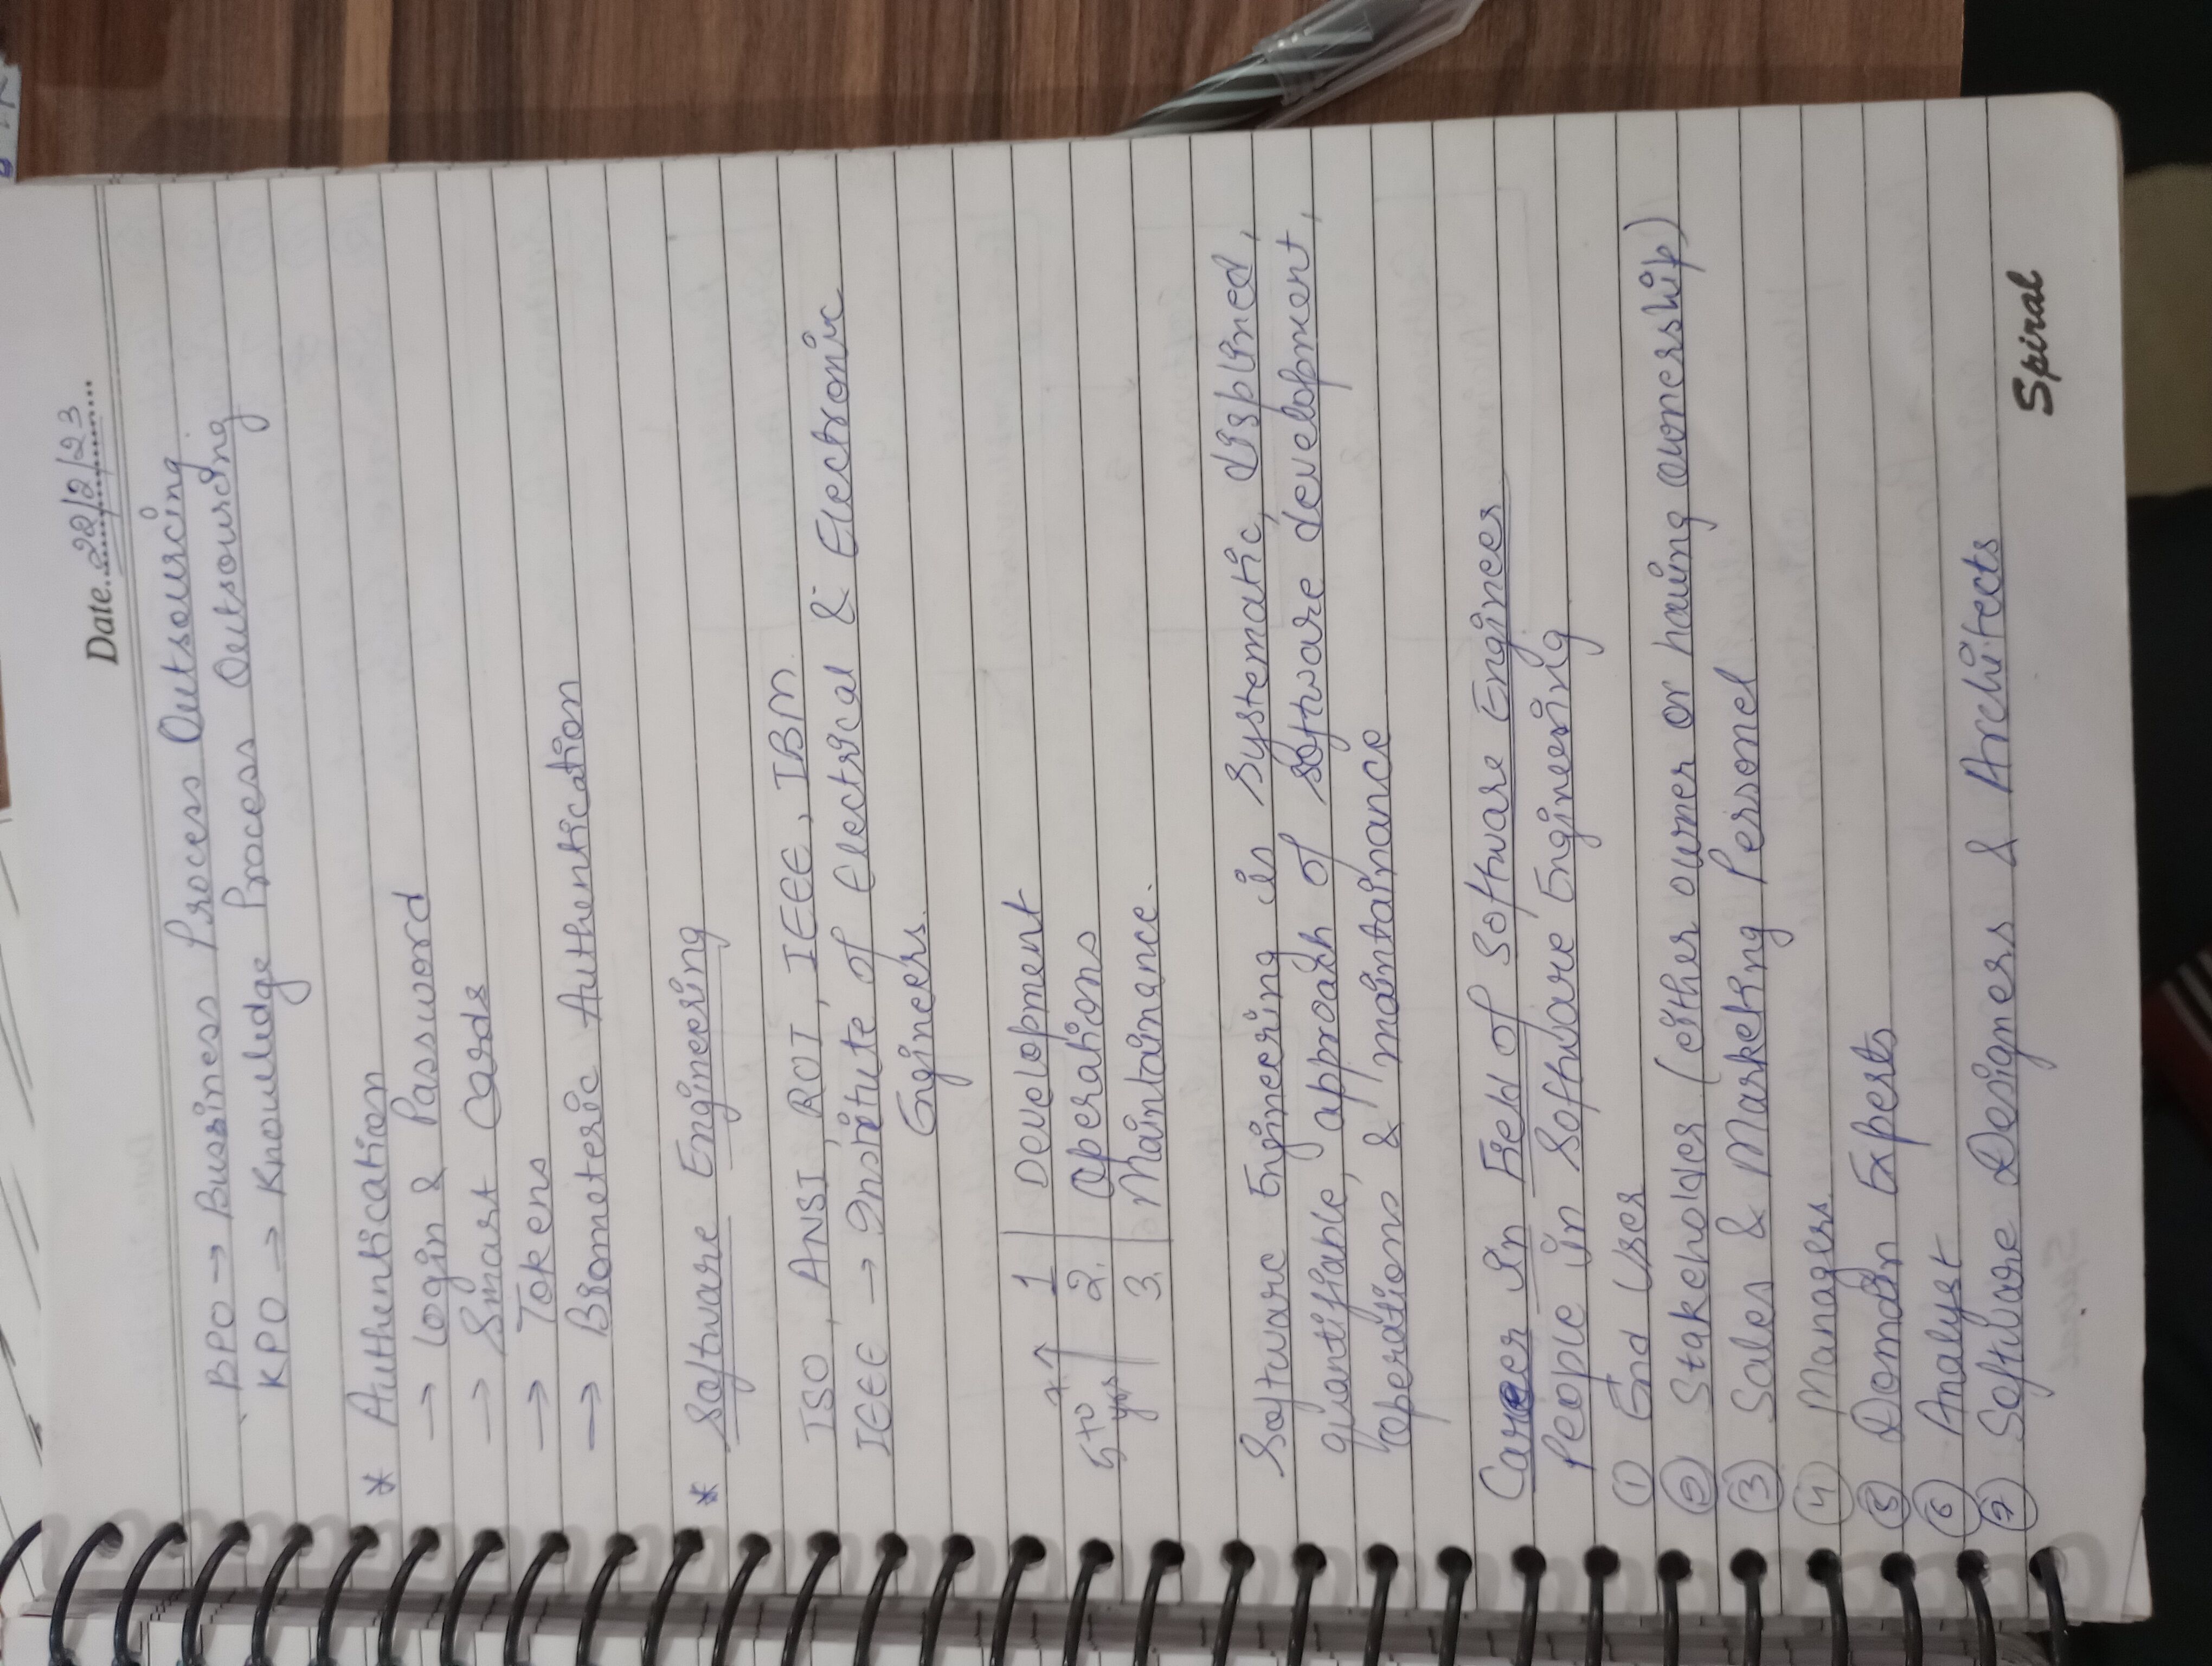 Date 22/2/23
BPO → Bussiness Process Outsourcing
KPO → Knowledge Process Outsourcing
* Authentication
→ Login & Password
→ Smart Cards
→ Tokens
→ Biometeric Authentication
* Software Engineering
ISO, ANSI, ROI, IEEE, IBM
IEEE → Institute of Electrical & Electronic
Engineers.
1 Development
5 to 7 yrs ↑ 2. Operations
3. Maintainance.
Software Engineering is systematic, displined,
quantifiable, approach of software development,
Operations & maintainance
Career in Field of Software Engineer
People in Software Engineering
① End User
② Stakeholder (either owner or having ownership)
③ Sales & Marketing Personel
④ Managers
⑤ Domain Experts
⑥ Analyst
⑦ Software Designers & Architects
Spiral